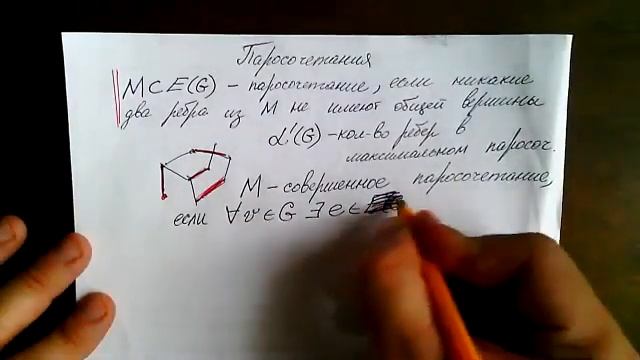 Паросочетания
M ⊂ E(G) – паросочетание, если никакие
два ребра из M не имеют общей вершины
α'(G) – кол-во рёбер в
максимальном паросоч.
M – совершенное паросочетание,
если ∀ v ∈ G ∃ e ∈